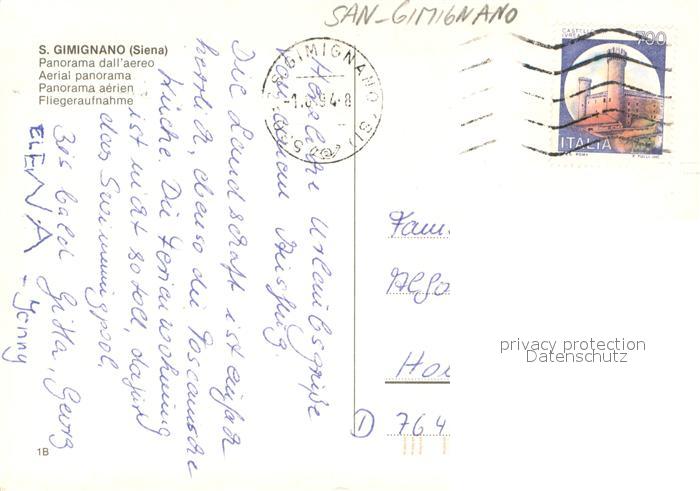 SAN-GIMIGNANO
S. GIMIGNANO (Siena)
Panorama dall'aereo
Aerial panorama
Panorama aérien
Fliegeraufnahme
CASTELLO
700
ITALIA
S. GIMIGNANO (SI)
Herzliche Urlaubsgrüße
von einem Ausflug.
Die Landschaft ist einfach
herrlich, ebenso die Toscanische
Küche. Die Ferienwohnung
ist nicht so toll, dafür
das Swimmingpool.
Bis bald Gitta, Georg
ELENA - Jenny
Fam.
Hou
D 764
privacy protection
Datenschutz
1B